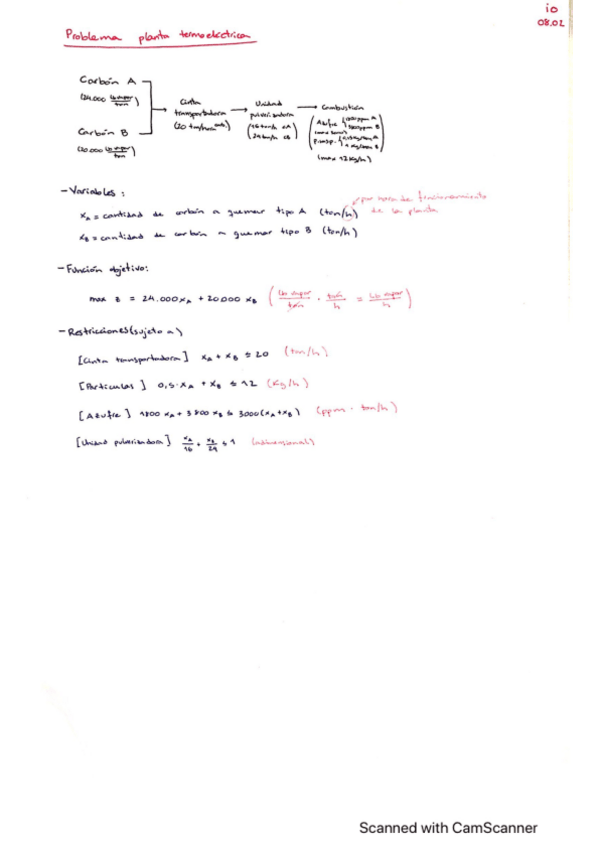 io
08.02
Problema planta termoeléctrica
Carbón A
(24.000 Lb vapor/ton)
Carbón B
(20.000 Lb vapor/ton)
Cinta transportadora
(20 ton/h)
Unidad pulverizadora
(16 ton/h
24 ton/h
Combustión
Azufre
(max 12 Kg/h)
- Variables:
xA = cantidad de carbón a quemar tipo A (ton/h) por hora de funcionamiento de la planta
xB = cantidad de carbón a quemar tipo B (ton/h)
- Función objetivo:
max z = 24.000xA + 20.000 xB (Lb vapor/ton · ton/h = Lb vapor/h)
- Restricciones (sujeto a)
[Cinta transportadora] xA + xB ≤ 20 (ton/h)
[Partículas] 0,5·xA + xB ≤ 12 (Kg/h)
[Azufre] 1800 xA + 3800 xB ≤ 3000(xA+xB) (ppm · ton/h)
[Unidad pulverizadora] xA/16 + xB/24 ≤ 1 (adimensional)
Scanned with CamScanner